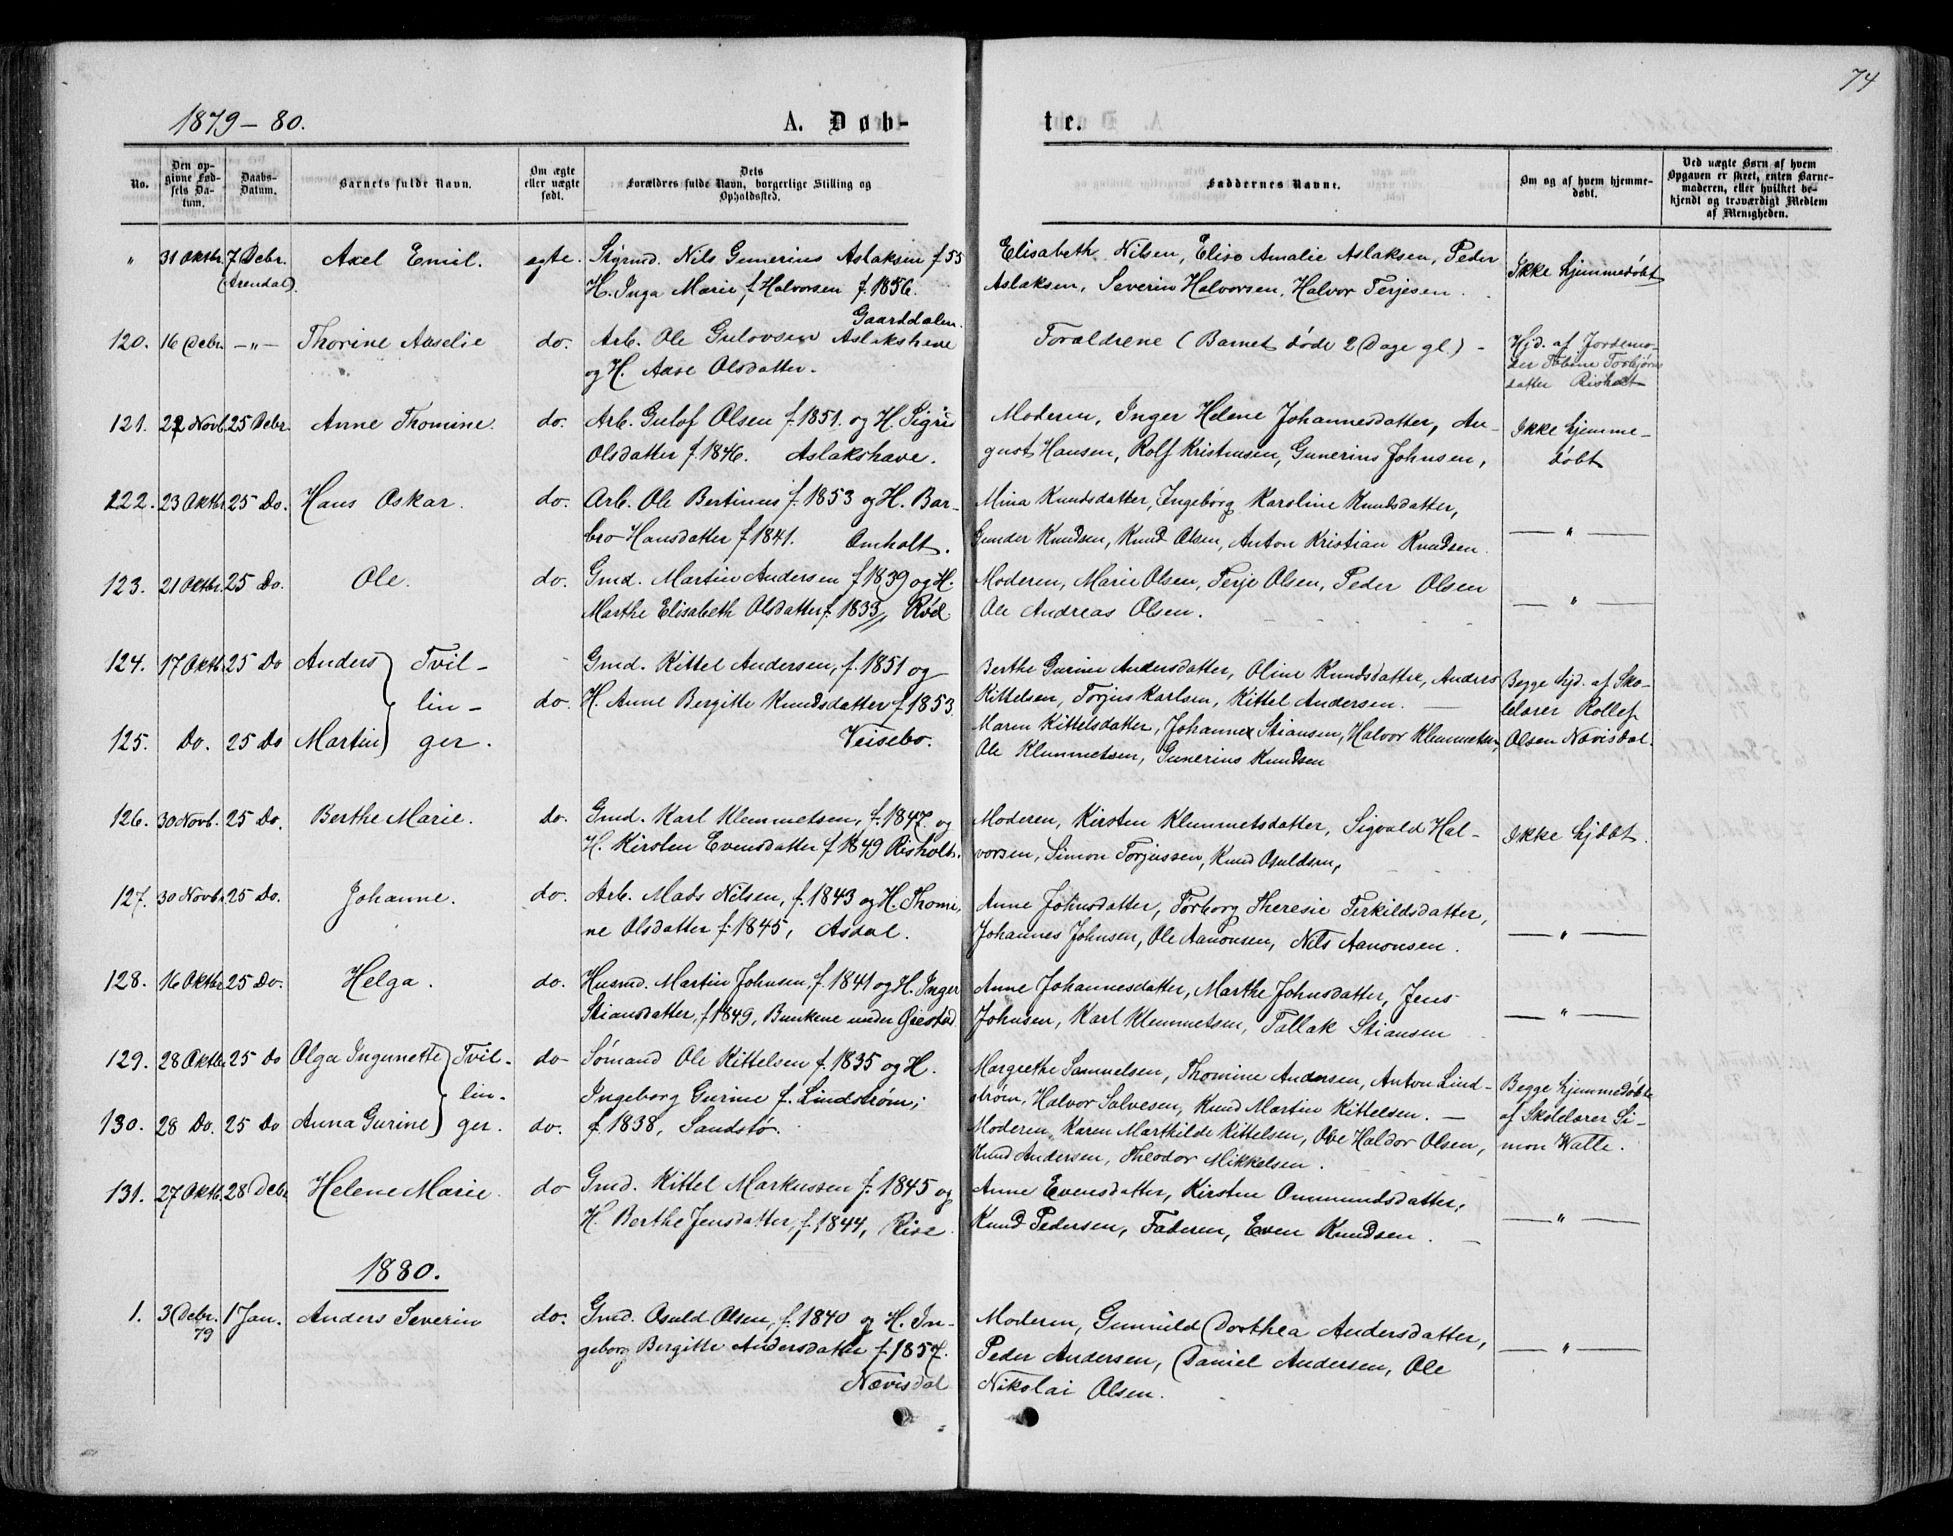 74
1879-80.
A. Døb-
te.
No.
Den op-
givne Fød-
sels Da-
tum.
Daabs-
Datum.
Barnets fulde Navn.
Om ægte
eller uægte
født.
Dets
Forældres fulde Navn, borgerlige Stilling og
Opholdssted.
Faddernes Navne.
Om og af hvem hjemme-
døbt.
Ved uægte Børn af hvem
Opgaven er skeet, enten Barne-
moderen, eller hvilket be-
kjendt og troværdigt Medlem
af Menigheden.
" 31 Oktbr. 7 Debr. Axel Emil. egte. Sigmd. Nils Gunerius Aslaksen f 55
(Arendal). H. Inga Marie f. Halvorsen f. 1856.
Gaarddalen.
Elisabeth Nilsen, Elise Amalie Aslaksen, Peder
Aslaksen, Severin Halvorsen, Halvor Terjesen.
Ikke hjemmedøbt
120. 16 Debr. -"- Thorine Aaselie do. Arb. Ole Gulovsen Aslakshave
og H. Aase Olsdatter.
Forældrene (Barnet døde 2 Dage gl.) -
Hjd. af Jordemo-
der Tobine Torbjørns
datter Risholt
121. 22 Novb. 25 Debr. Anne Thomine. do. Arb. Gulof Olsen f. 1851. og H. Sigrid
Olsdatter f. 1846. Aslakshave.
Moderen, Inger Helene Johannesdatter, Au-
gust Hansen, Rolf Kristensen, Gunerius Johnsen,
Ikke hjemme-
døbt
122. 23 Oktbr. 25 Do. Hans Oskar. do. Arb. Ole Bertinius f. 1853 og H. Bar-
bro Hansdatter f 1841. Omholt.
Mina Knudsdatter, Ingeborg Karoline Knudsdatter,
Gunder Knudsen, Knud Olsen, Anton Kristian Knudsen.
— " —
123. 21 Oktbr. 25 Do. Ole. do. Gmd. Martin Andersen f 1839 og H.
Marthe Elisabeth Olsdatter f. 1833, Rød
Moderen, Marie Olsen, Terje Olsen, Peder Olsen
Ole Andreas Olsen.
— " —
124. 17 Oktb. 25 Do Anders } Tvil-
lin-
Gmd. Kittel Andersen, f. 1851 og
do. H. Anne Bergitte Knudsdatter f 1853.
125. Do. 25 Do Martin } ger. Veisebo.
Berthe Gurine Andersdatter, Oline Knudsdatter, Anders
Kittelsen, Torjus Karlsen, Kittel Andersen. —
Maren Kittelsdatter, Johannes Stiansen, Halvor Klemmetsen,
Ole Klemmetsen, Gunerius Knudsen
Begge hjd. af Sko-
lelærer Rollef
Olsen Nævisdal.
126. 30 Novb. 25 Do. Berthe Marie. do. Gmd. Karl Klemmetsen, f. 1847. og
H. Kirsten Evensdatter f 1849 Risholt.
Moderen, Kirsten Klemmetsdatter, Sigvald Hal-
vorsen, Simon Torjussen, Knud Osuldsen,
Ikke hjdbt.
127. 30 Novb. 25 Do. Johanne. do. Arb. Mads Nilsen, f. 1843 og H. Thomi-
ne Olsdatter f. 1845, Asdal.
Anne Johnsdatter, Torborg Theresie Terkildsdatter,
Johannes Johnsen, Ole Aanonsen, Nils Aanonsen.
— " —
128. 16 Oktbr 25 Do. Helga. do. Husmd. Martin Johnsen, f. 1841 og H. Inger
Stiansdatter, f 1849, Bunkene under Øiestad
Anne Johannesdatter, Marthe Johnsdatter, Jens
Johnsen, Karl Klemmetsen, Tallak Stiansen
— " —
129. 28 Oktbr 25 Do Olga Ingunette } Tvil-
lin-
do- Sømand Ole Kittelsen f. 1835 og H.
Ingeborg Gurine f. Lindstrøm;
130. 28 Do. 25 Do Anna Gurine } ger. do. f. 1838, Sandstø.
Margrethe Samuelsen, Thomine Andersen, Anton Lind-
strøm, Halvor Salvesen, Knud Martin Kittelsen. —
Moderen, Karen Marthilde Kittelsen, Ove Haldor Olsen,
Knud Andersen, Theodor Mikkelsen.
Begge hjemmedøbte
af Skolelærer Si-
mon Walle.
131. 27 Oktb. 28 Debr Helene Marie. do Gmd. Kittel Markussen f. 1845 og
H. Berthe Jensdatter, f. 1844, Rise.
Anne Evensdatter, Kirsten Ommundsdatter,
Knud Pedersen, Faderen, Even Knudsen.
— " —
1880.
1. 3 Debr. 79 1 Jan. Anders Severin do. Gmd. Osuld Olsen, f. 1840 og H. In-
geborg Bergitte Andersdatter f. 1857.
Nævisdal
Moderen, Gunnild Dorthea Andersdatter,
Peder Andersen, Daniel Andersen, Ole
Nikolai Olsen.
— " —